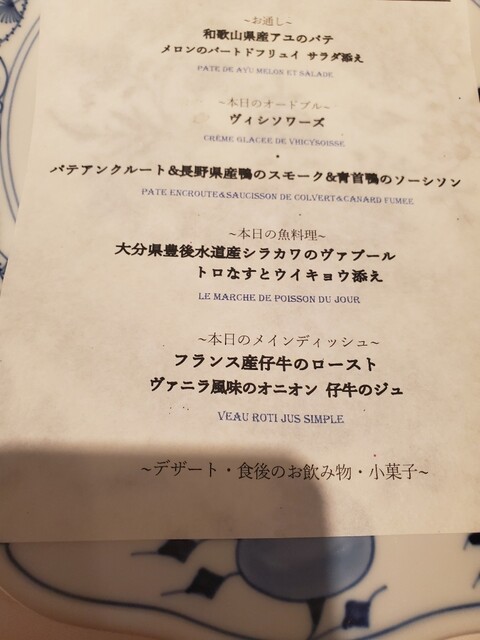 ~お通し~
和歌山県産アユのパテ
メロンのパートドフリュイ サラダ添え
PATE DE AYU MELON ET SALADE
~本日のオードブル~
ヴィシソワーズ
CRÈME GLACEE DE VHICYSOISSE
パテアンクルート&長野県産鴨のスモーク&青首鴨のソーシソン
PATE ENCROUTE&SAUCISSON DE COLVERT&CANARD FUMEE
~本日の魚料理~
大分県豊後水道産シラカワのヴァプール
トロなすとウイキョウ添え
LE MARCHE DE POISSON DU JOUR
~本日のメインディッシュ~
フランス産仔牛のロースト
ヴァニラ風味のオニオン 仔牛のジュ
VEAU ROTI JUS SIMPLE
~デザート・食後のお飲み物・小菓子~